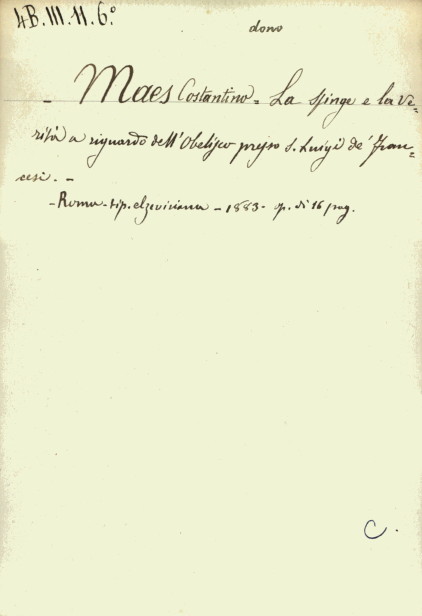 4B.III.11.6º
dono
- Maes Costantino = La sfinge e la Ve=
rità a riguardo dell'Obelisco presso S. Luigi de' Fran=
cesi. -
- Roma - tip. elzeviriana - 1883 - op. di 16 pag.
C.